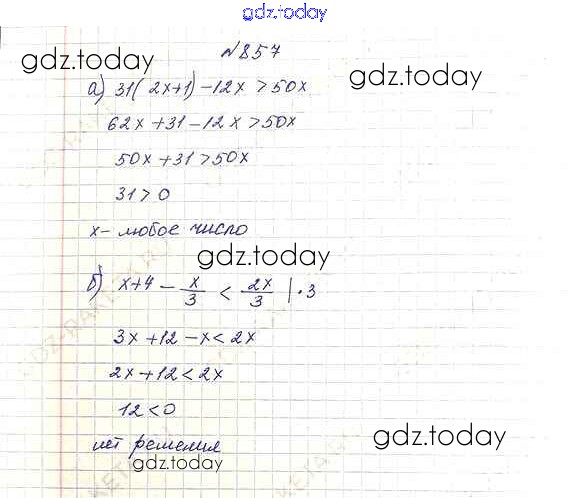 gdz.today
№857
gdz.today
gdz.today
а) 31(2x+1)-12x>50x
62x+31-12x>50x
50x+31>50x
31>0
x- любое число
gdz.today
б) x+4 - x/3 < 2x/3 |·3
3x+12-x<2x
2x+12<2x
12<0
нет решения
gdz.today
gdz.today